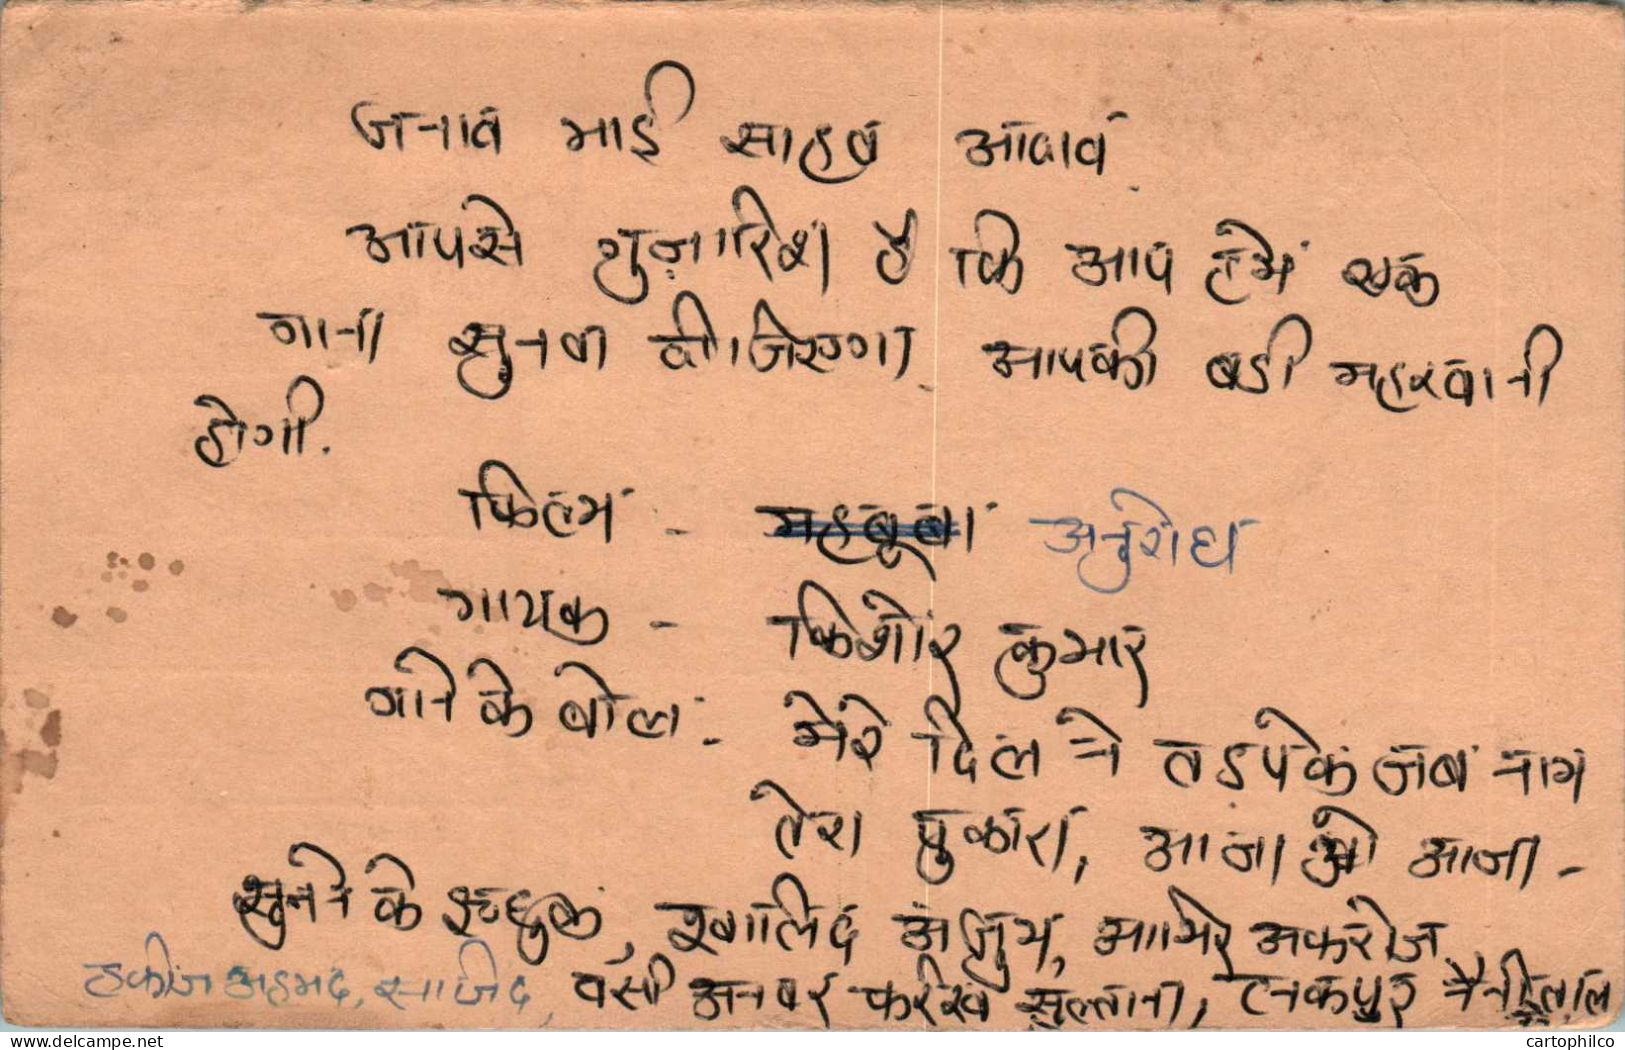 जनाब भाई साहब आदाब
आपसे गुज़ारिश है कि आप हमें एक
गाना सुनवा दीजिएगा. आपकी बडी महरबानी
होगी.
फिल्म - महबूबा अनुरोध
गायक - किशोर कुमार
गाने के बोल - मेरे दिल ने तडपके जब नाम
तेरा पुकारा, आजा ओ आजा -
सुनने के इच्छुक, खालिद अंजुम,
हफीज अहमद, साजिद, वसी अनवर सुल्ताना, टनकपुर नैनीताल
delcampe.net
cartophilco